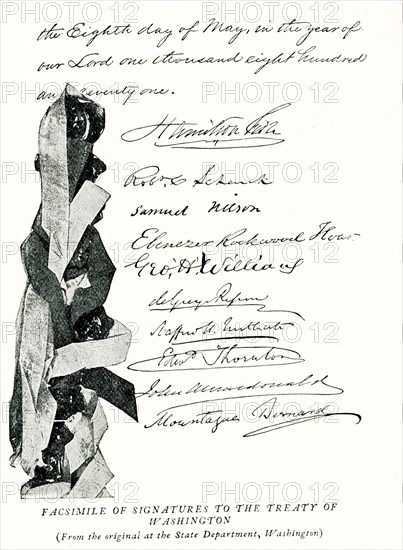 the Eighth day of May, in the year of
our Lord one thousand eight hundred
and seventy one.
Hamilton Fish
Robt C Schenck
Samuel Nelson
Ebenezer Rockwood Hoar
Geo. H. Williams
de Grey & Ripon
Stafford H. Northcote
Edwd Thornton
John A Macdonald
Mountague Bernard
FACSIMILE OF SIGNATURES TO THE TREATY OF
WASHINGTON
(From the original at the State Department, Washington)
PHOTO12